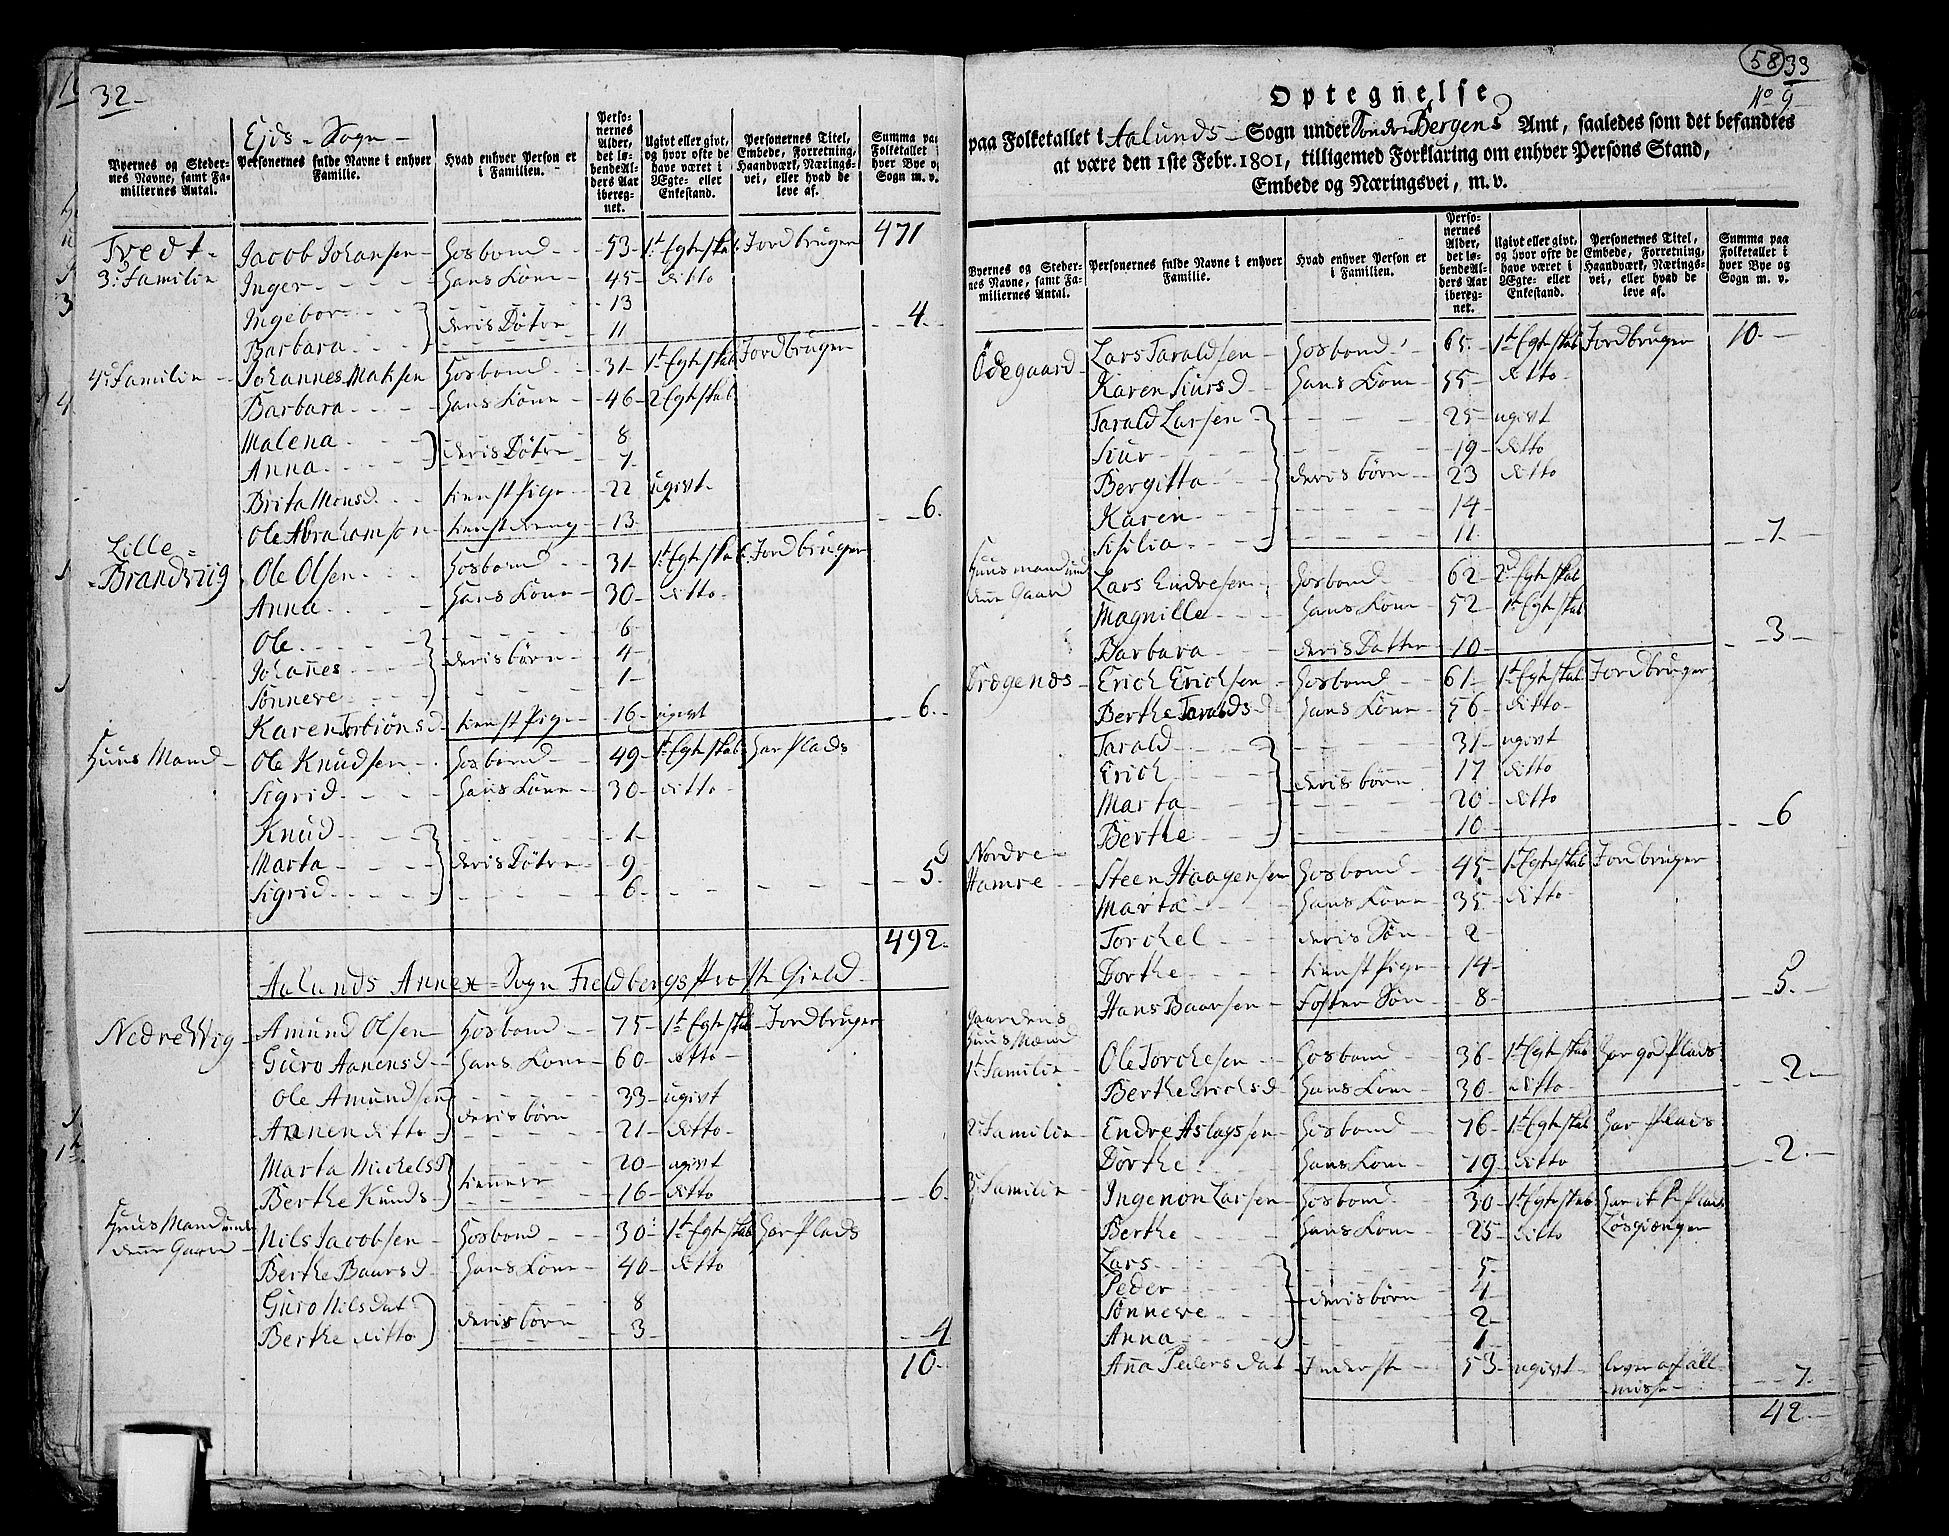 32
Ejds - Sogn
Byernes og Stedernes Navne, samt Familiernes Antal. | Personernes fulde Navne i enhver Familie. | Hvad enhver Person er i Familien. | Personernes Alder, det løbende Alders Aar iberegnet. | Ugivt eller givt, og hvor ofte de have været i Ægte- eller Enkestand. | Personernes Titel, Embede, Forretning, Haandværk, Næringsvei, eller hvad de leve af. | Summa paa Folketallet i hver Bye og Sogn m. v.
471
Tvedt - Jacob Johansen - Hosbond - 53 - 1t Egteskab Jordbruger
3. Familie Inger - Hans Kone - 45 - ditto
Ingebor - 13
deris Døtre
Barbara - 11 - 4
4. Familie - Johannes Matsen Hosbond - 31 - 1t Egteskab Jordbruger
Barbara - Hans Kone - 46 - 2 Egteskab
Malena - 8
deris Døtre
Anna - 7
Brita Monsd. Tienest Pige - 22 ugivt
Ole Abrahamson - Tienest dreng - 13 - 6
Lille
Brandviig Ole Olsen - Hosbond - 31 - 1t Egteskab Jordbruger
Anna - Hans Kone - 30 - ditto
Ole - 6
Johannes - deris børn - 4
Sønneve - 1
Karen Torbiönsd - Tienest Pige - 16 - ugivt - 6
Huus Mand - Ole Knudsen - Hosbond - 49 - 1t Egteskab Har Plads
Sigrid - Hans Kone - 30 - ditto
Knud - 1
Marta - deris Døtre - 9
Sigrid - 6 - 5
492
Aalunds Annex - Sogn Fieldbergs Præste Gield
Nedre Wiig - Amund Olsen - Hosbond - 75 - 1t Egteskab - Jordbruger
Guro Aanensd - Hans Kone - 60 - ditto
Ole Amundsen - 33 - ugivt
deris børn
Aanen ditto - 21 - ditto
Marta Michelsd - 20 - ugivt
tienere
Berthe Knuds - 16 - ditto - 6
Huus Mand under
denne Gaard - Nils Jacobsen - Hosbond - 30 - 1t Egteskab Har Plads
Berthe Baarsd - Hans Kone - 40 - ditto
Guro Nilsdat - 8
deris børn
Berthe ditto - 3 - 4
10
58 33
No 9
Optegnelse
paa Folketallet i Aalunds Sogn under Sondre Bergens Amt, saaledes som det befandtes
at være den 1ste Febr. 1801, tilligemed Forklaring om enhver Persons Stand,
Embede og Næringsvei, m. v.
Byernes og Stedernes Navne, samt Familiernes Antal. | Personernes fulde Navne i enhver Familie. | Hvad enhver Person er i Familien. | Personernes Alder, det løbende Alders Aar iberegnet. | Ugivt eller givt, og hvor ofte de have været i Ægte- eller Enkestand. | Personernes Titel, Embede, Forretning, Haandværk, Næringsvei, eller hvad de leve af. | Summa paa Folketallet i hver Bye og Sogn m. v.
Ödegaard - Lars Taraldsen - Hosbond - 65 - 1t Egteskab Jordbruger 10
Karen Siursd - Hans Kone - 55 - ditto
Tarald Larsen - 25 - ugivt
Siur - 19 - ditto
Bergitta - deris børn - 23 ditto
Karen - 14
Sisilia - 11 - 7
Huusmand und
denne Gaard Lars Endresen - Hosbond - 62 - 2d Egteskab
Magnille - Hans Kone - 52 - 1t Egteskab
Barbara - deris Datter - 10 - 3
Trøgenes - Erich Erichsen - Hosbond - 61 - 1t Egteskab Jordbruger
Berthe Taraldsd - Hans Kone - 56 - ditto
Tarald - 31 - ugivt
Erich - deris børn - 17 - ditto
Marta - 20 - ditto
Berthe - 10 - 6
Nordre
Hamre - Steen Haagensen Hosbond - 45 - 1t Egteskab Jordbruger
Marta - Hans Kone - 35 - ditto
Torchel - deris Søn - 2
Dorthe - Tienest Pige - 14
Hans Baarsen - Foster Søn - 8 - 5
Gaardens
Huus Mænd
1t Familie - Ole Torchesen - Hosbond - 36 - 1t Egteskab Har god Plads
Berthe Erichsd - Hans Kone - 30 - ditto - 2
2. Familie - Endre Aslagsen - Hosbond - 76 - 1t Egteskab Har Plads
Dorthe - Hans Kone - 79 - ditto - 2
3. Familie - Ingemon Larsen - Hosbond - 30 - 1t Egteskab Har ike Plads
Berthe - Hans Kone - 25 - ditto Løsgiænger
Lars - 5
Peder - deris børn - 4
Sønneve - 2
Anna - 1
Ana Peders dat - Inderste - 53 - ugivt - lever af all
misse - 7
42